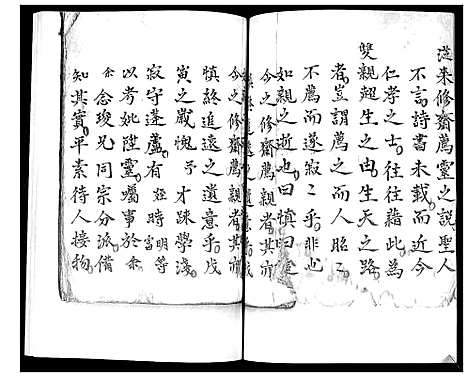 從來修齋薦靈之說聖人
不言詩書未載而近今
仁孝之士往往藉此為
雙親超生之由生天之路
者豈謂薦之而人昭之
不薦而遂寂寂乎非也
如親之逝也曰慎曰追
今之修齋薦親者其亦
今之修齋薦親者其亦
慎終追遠之遺意乎戊
寅之歲愧予才疎學淺
寂守蓬廬有姪時明富等
以考妣陞靈囑事於余
余念竣兄同宗分派備
知其實平素待人接物